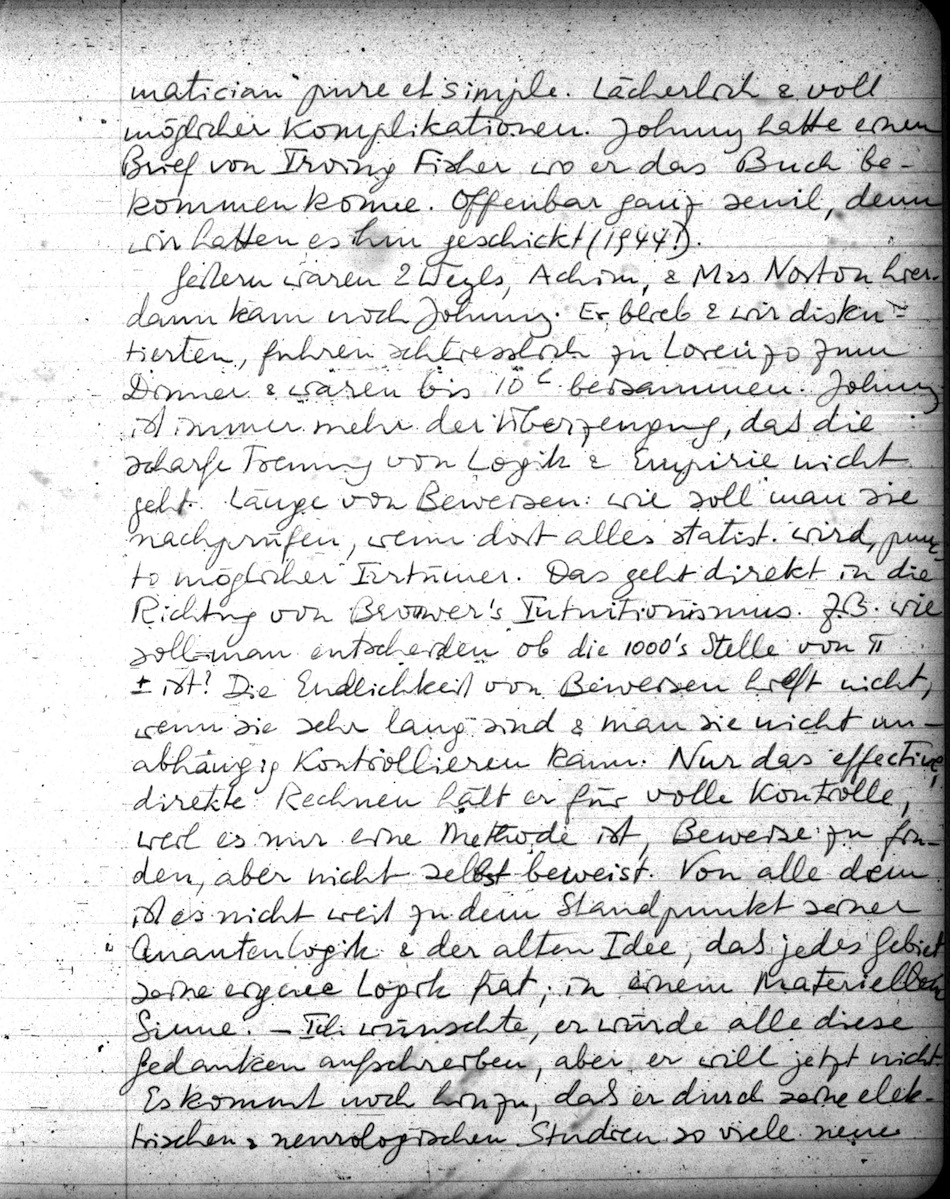 matician pure et simple. Lächerlich & voll
möglicher Komplikationen. Johnny hatte einen
Brief von Irving Fisher wo er das Buch be-
kommen könne. Offenbar ganz senil, denn
wir hatten es ihm geschickt (1944!).
Gestern waren 2 Weyls, Achim, & Mrs Norton hier.
dann kam noch Johnny. Er blieb & wir disku-
tierten, fuhren schliesslich zu Lorenzo zum
Dinner & waren bis 10 beisammen. Johnny
ist immer mehr der Überzeugung, das die
scharfe Trennung von Logik & Empirie nicht
geht. Länge von Beweisen: wie soll man sie
nachprüfen, wenn dort alles statist. wird, punc-
to möglicher Irrtümer. Das geht direkt in die
Richtng von Brouwer's Intuitionismus. Z.B. wie
soll man entscheiden ob die 1000's Stelle von π
± ist? Die Endlichkeit von Beweisen hilft nicht,
wenn sie sehr lang sind & man sie nicht un-
abhängig Kontrollieren kann. Nur das effective,
direkte Rechnen hält er für volle Kontrolle,
weil es nur eine Methode ist, Beweise zu fin-
den, aber nicht selbst beweist. Von alle dem
ist es nicht weit zu dem Standpunkt seiner
Quantenlogik & der alten Idee, das jedes Gebiet
seine eigene Logik hat, in einem Materiellen
Sinne. – Ich wünschte, er würde alle diese
Gedanken aufschreiben, aber er will jetzt nicht.
Es kommt noch hinzu, das er durch seine elek-
trischen & neurologischen Studien so viele neue